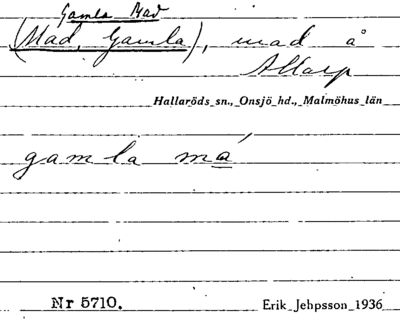 Gamla Mad
(Mad, Gamla), mad å
Allarp
Hallaröds sn., Onsjö hd., Malmöhus län
gamla má
Nr 5710.
Erik Jehpsson 1936